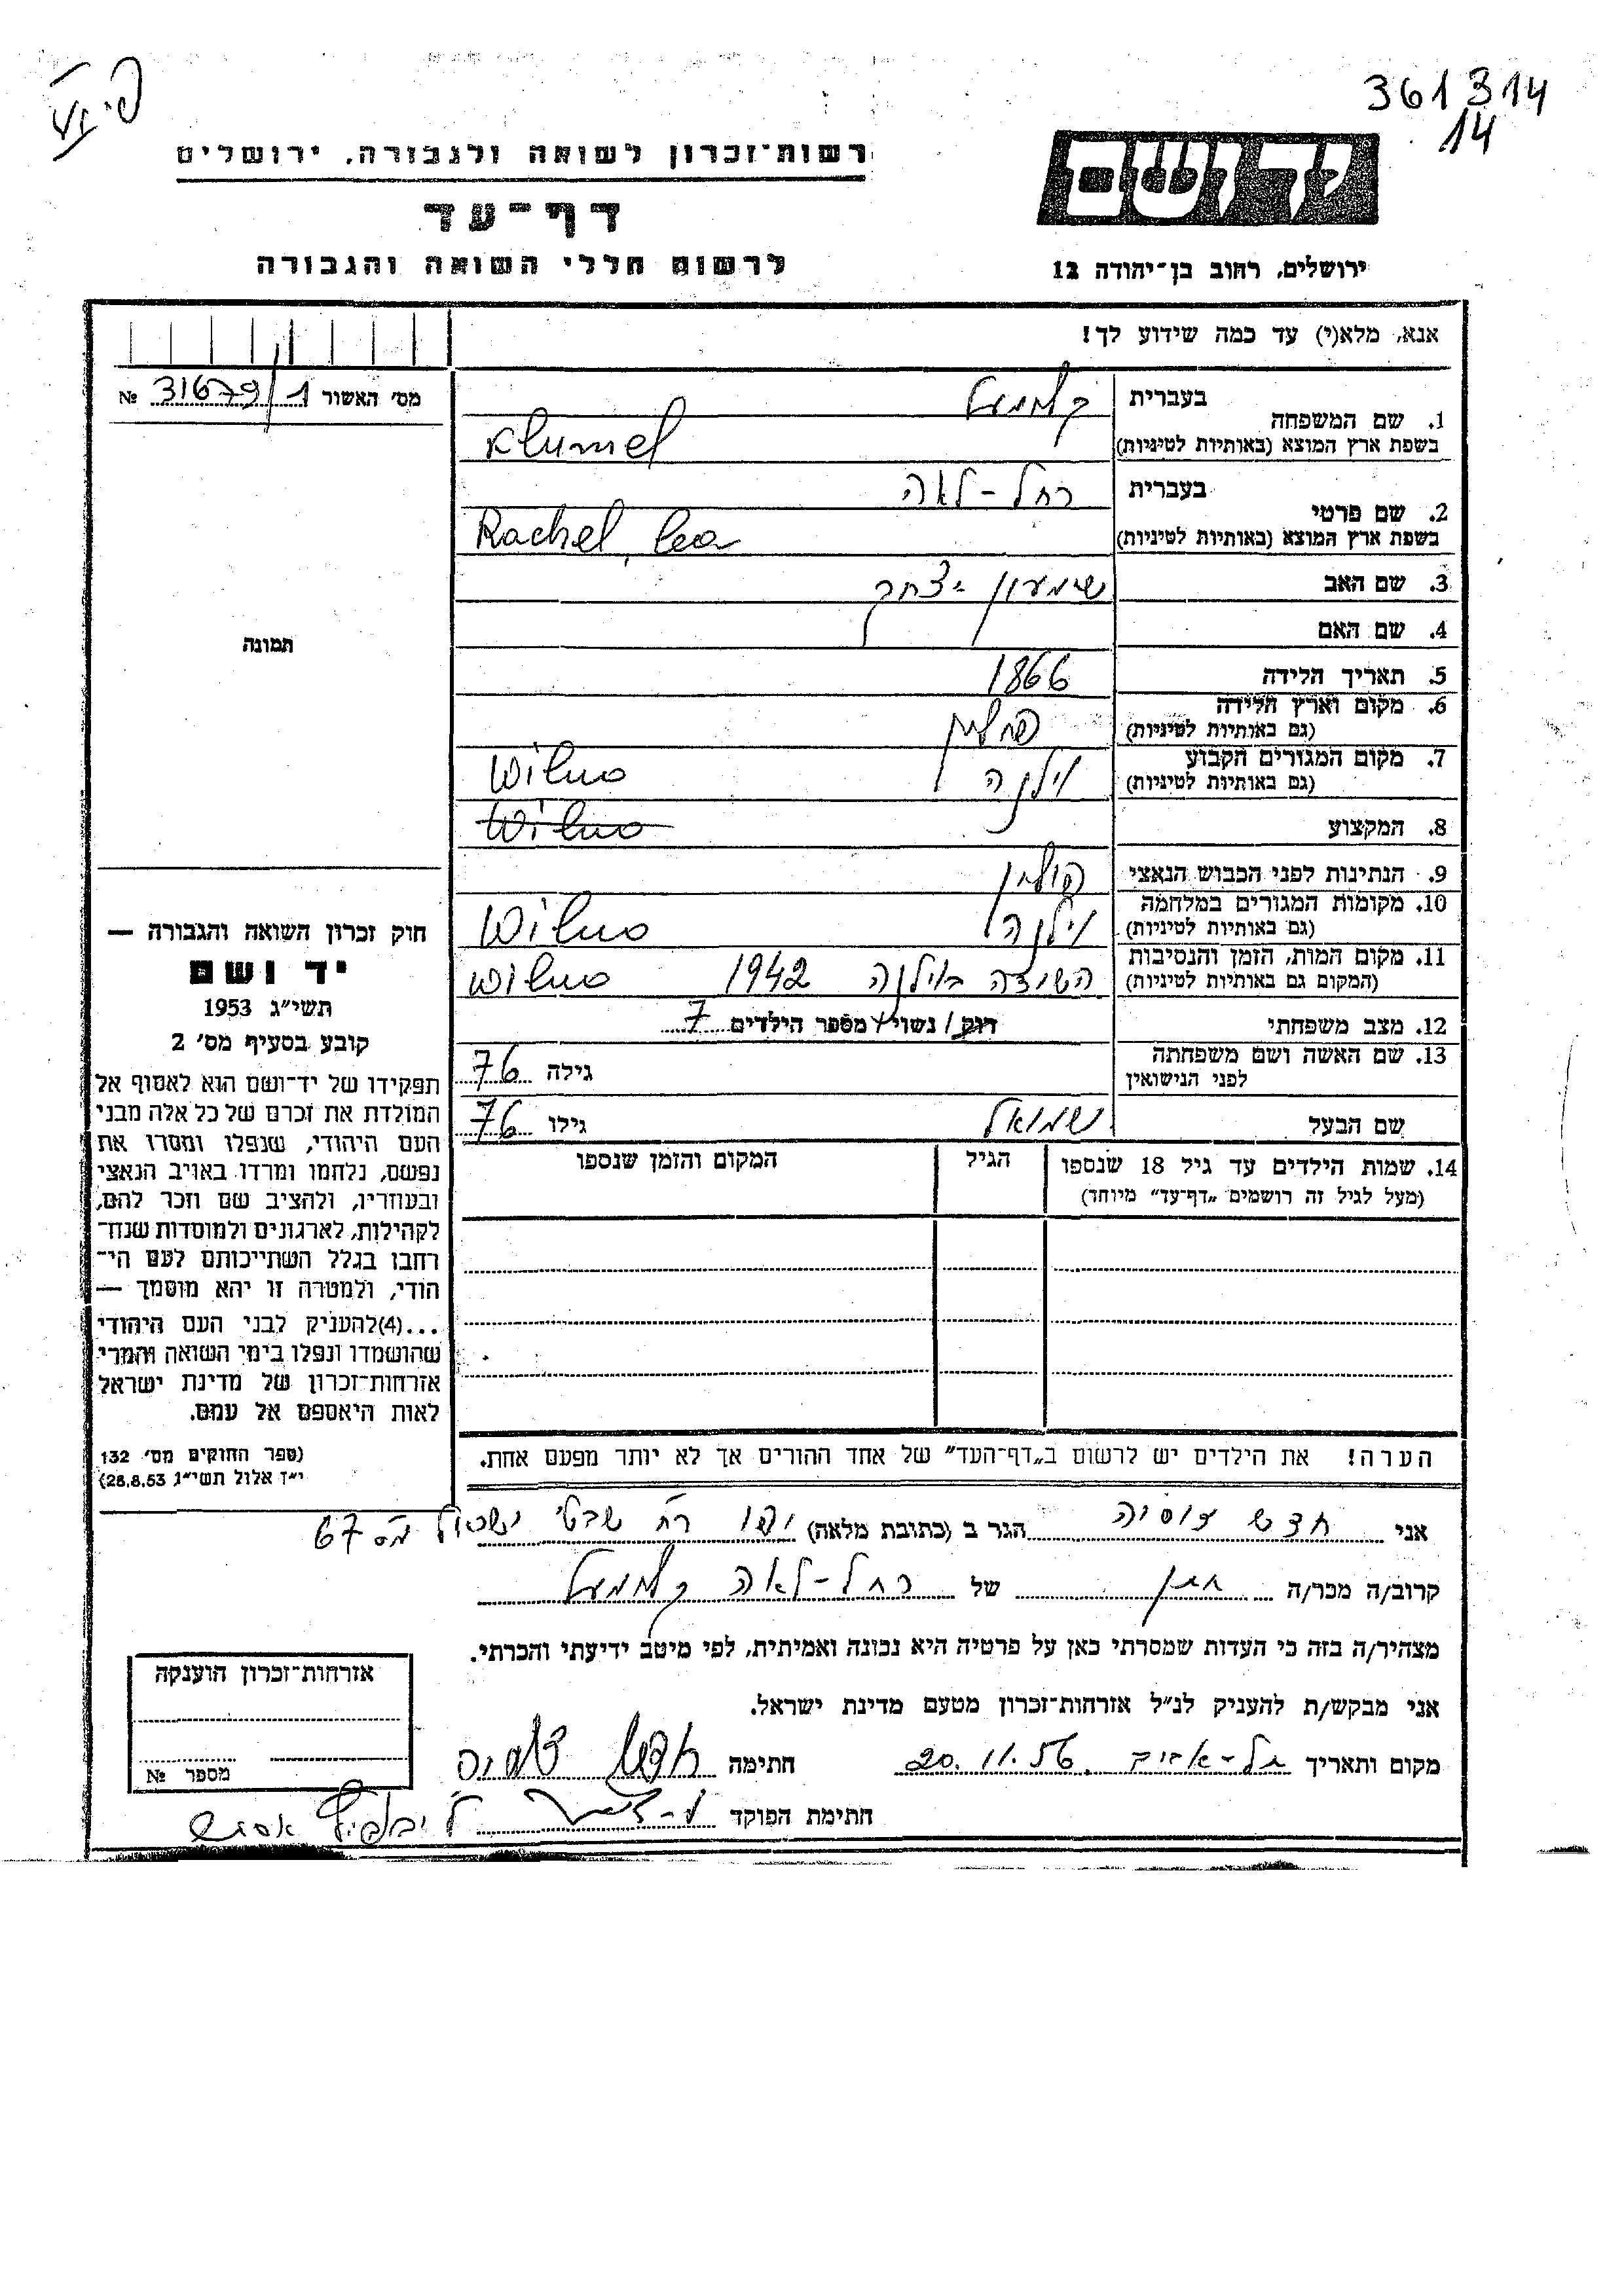 361314
14
פי״ע
יד ושם
רשות־זכרון לשואה ולגבורה, ירושלים
דף־עד
לרשום חללי השואה והגבורה
ירושלים, רחוב בן־יהודה 12
אנא, מלא(י) עד כמה שידוע לך!
מס׳ האשור 31679/1 №
1. שם המשפחה
בעברית
בשפת ארץ המוצא (באותיות לטיניות) Klumel
2. שם פרטי
בעברית רחל-לאה
בשפת ארץ המוצא (באותיות לטיניות) Rachel, Lea
3. שם האב שימעון יצחק
4. שם האם
5. תאריך הלידה 1866
6. מקום וארץ הלידה
(גם באותיות לטיניות)
7. מקום המגורים הקבוע וילנה Wilno
(גם באותיות לטיניות)
8. המקצוע Wilno
9. הנתינות לפני הכבוש הנאצי פולין
10. מקומות המגורים במלחמה וילנה Wilno
(גם באותיות לטיניות)
11. מקום המות, הזמן והנסיבות בוילנה 1942 Wilno
(המקום גם באותיות לטיניות)
12. מצב משפחתי רוק / נשוי / מספר הילדים 7
13. שם האשה ושם משפחתה
לפני הנישואין גילה 76
שם הבעל שמואל גילו 76
14. שמות הילדים עד גיל 18 שנספו הגיל המקום והזמן שנספו
(מעל לגיל זה רושמים „דף־עד” מיוחד)
הערה! את הילדים יש לרשום ב„דף־העד” של אחד ההורים אך לא יותר מפעם אחת.
תמונה
חוק זכרון השואה והגבורה —
יד ושם
תשי״ג 1953
קובע בסעיף מס׳ 2
תפקידו של יד־ושם הוא לאסוף אל
המולדת את זכרם של כל אלה מבני
העם היהודי, שנפלו ומסרו את
נפשם, נלחמו ומרדו באויב הנאצי
ובעוזריו, ולהציב שם וזכר להם,
לקהילות, לארגונים ולמוסדות שנח־
רבו בגלל השתייכותם לעם הי־
הודי, ולמטרה זו יהא מוסמך —
...(4)להעניק לבני העם היהודי
שהושמדו ונפלו בימי השואה והמרי
אזרחות־זכרון של מדינת ישראל
לאות היאספם אל עמם.
(ספר החוקים מס׳ 132
י״ז אלול תשי״ג 28.8.53)
אני חדש הגר ב (כתובת מלאה) יפו רח׳ שבטי ישראל מס 67
קרוב/ה מכר/ה חתן של רחל-לאה
מצהיר/ה בזה כי העדות שמסרתי כאן על פרטיה היא נכונה ואמיתית, לפי מיטב ידיעתי והכרתי.
אני מבקש/ת להעניק לנ״ל אזרחות־זכרון מטעם מדינת ישראל.
מקום ותאריך תל-אביב 20.11.56 חתימה חדש
חתימת הפוקד
אזרחות־זכרון הוענקה
מספר №